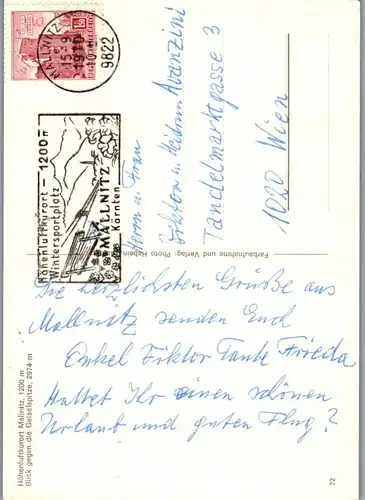 MALLNITZ
15.-9
1970-10
9822
Höhenluftkurort - 1200 m
Wintersportplatz
MALLNITZ
Kärnten
Herrn u. Frau
Viktor u. Heidrun Avanzini
Tandelmarktgasse 3
1020 Wien
Farbaufnahme und Verlag: Photo
Die herzlichsten Grüße aus
Mallnitz senden Euch
Onkel Viktor Tante Frieda
Hattet Ihr einen schönen
Urlaub und guten Flug?
Höhenluftkurort Mallnitz, 1200 m
Blick gegen die Geiselspitze, 2974 m
72